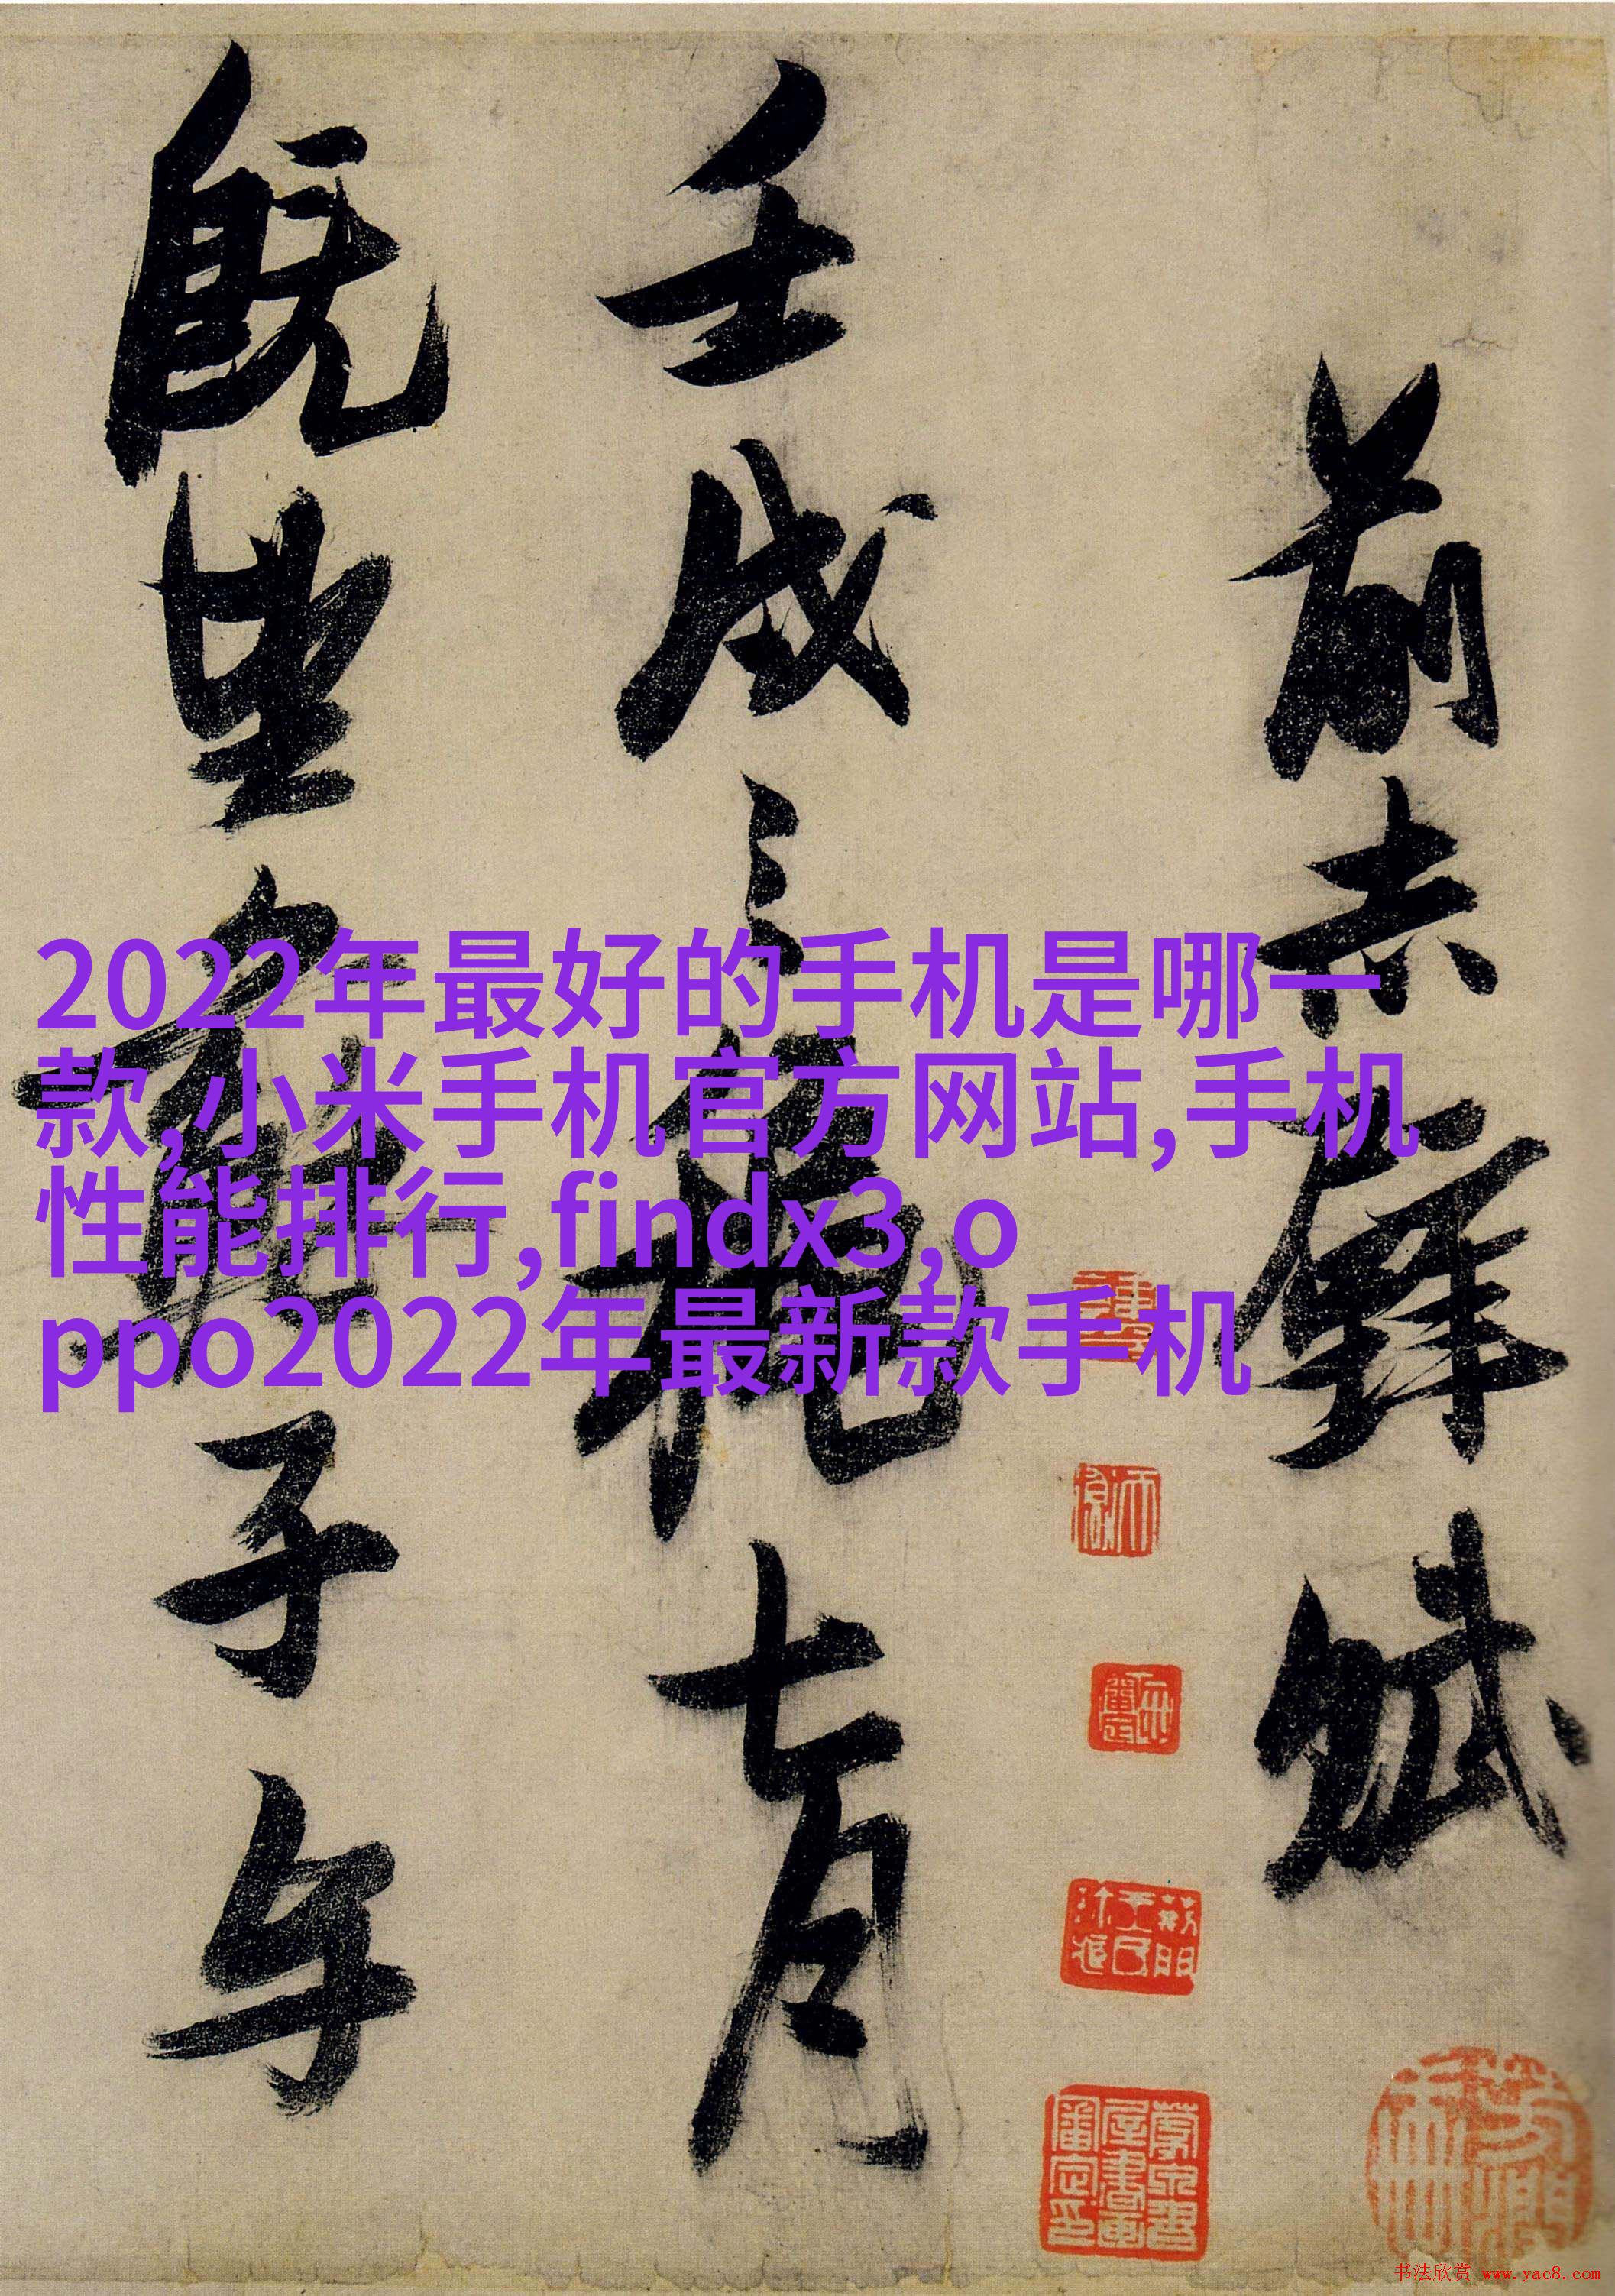 前赤壁賦
壬戌之秋七月
既望蘇子与
2022年最好的手机是哪一
款,小米手机官方网站,手机
性能排行,findx3,o
ppo2022年最新款手机
书法欣赏 www.yac8.com